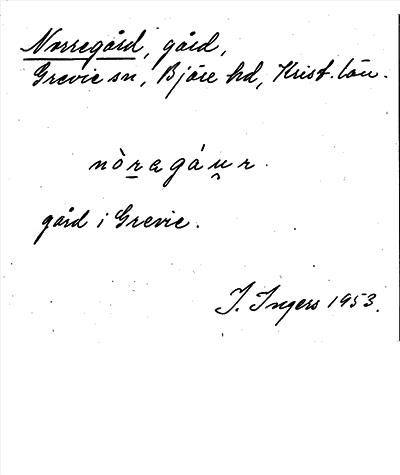 Norregård, gård,
Grevie sn, Bjäre hd, Krist. län.
nòṟagáu̯r.
gård i Grevie.
I. Ingers 1953.